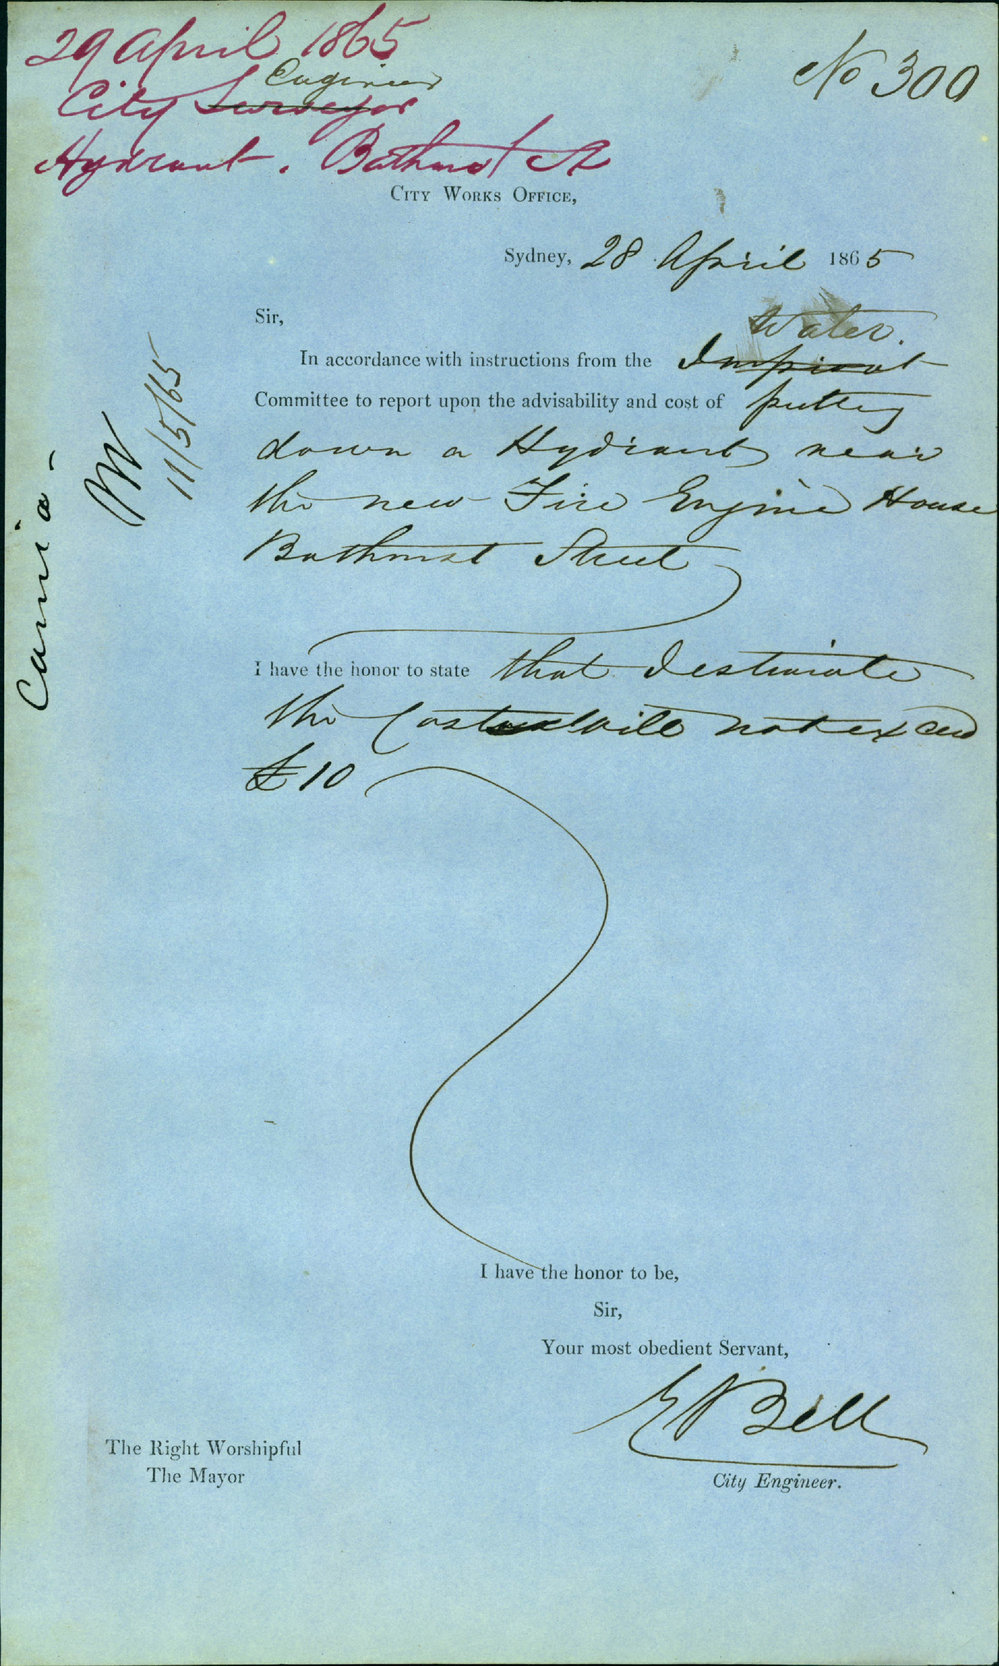 29 April 1865
Engineer
City Surveyor
Hydrant. Bathurst St
No 300
CITY WORKS OFFICE,
Sydney, 28 April 1865
Sir,
Water.
In accordance with instructions from the Impr'vt
Committee to report upon the advisability and cost of putting
down a Hydrant near
the new Fire Engine House
Bathurst Street
I have the honor to state that I estimate
the Cost will not exceed
£10
I have the honor to be,
Sir,
Your most obedient Servant,
E Bell
City Engineer.
The Right Worshipful
The Mayor
11/5/65